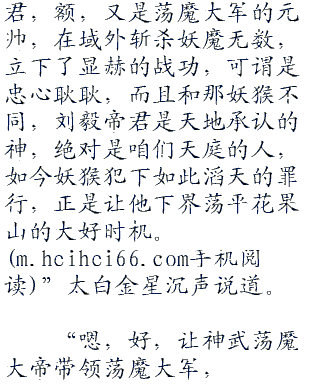 君，额，又是荡魔大军的元
帅，在域外斩杀妖魔无数，
立下了显赫的战功，可谓是
忠心耿耿，而且和那妖猴不
同，刘毅帝君是天地承认的
神，绝对是咱们天庭的人，
如今妖猴犯下如此滔天的罪
行，正是让他下界荡平花果
山的大好时机。
(m.hcihci66.com手机阅
读)”太白金星沉声说道。
“嗯，好，让神武荡魔
大帝带领荡魔大军，